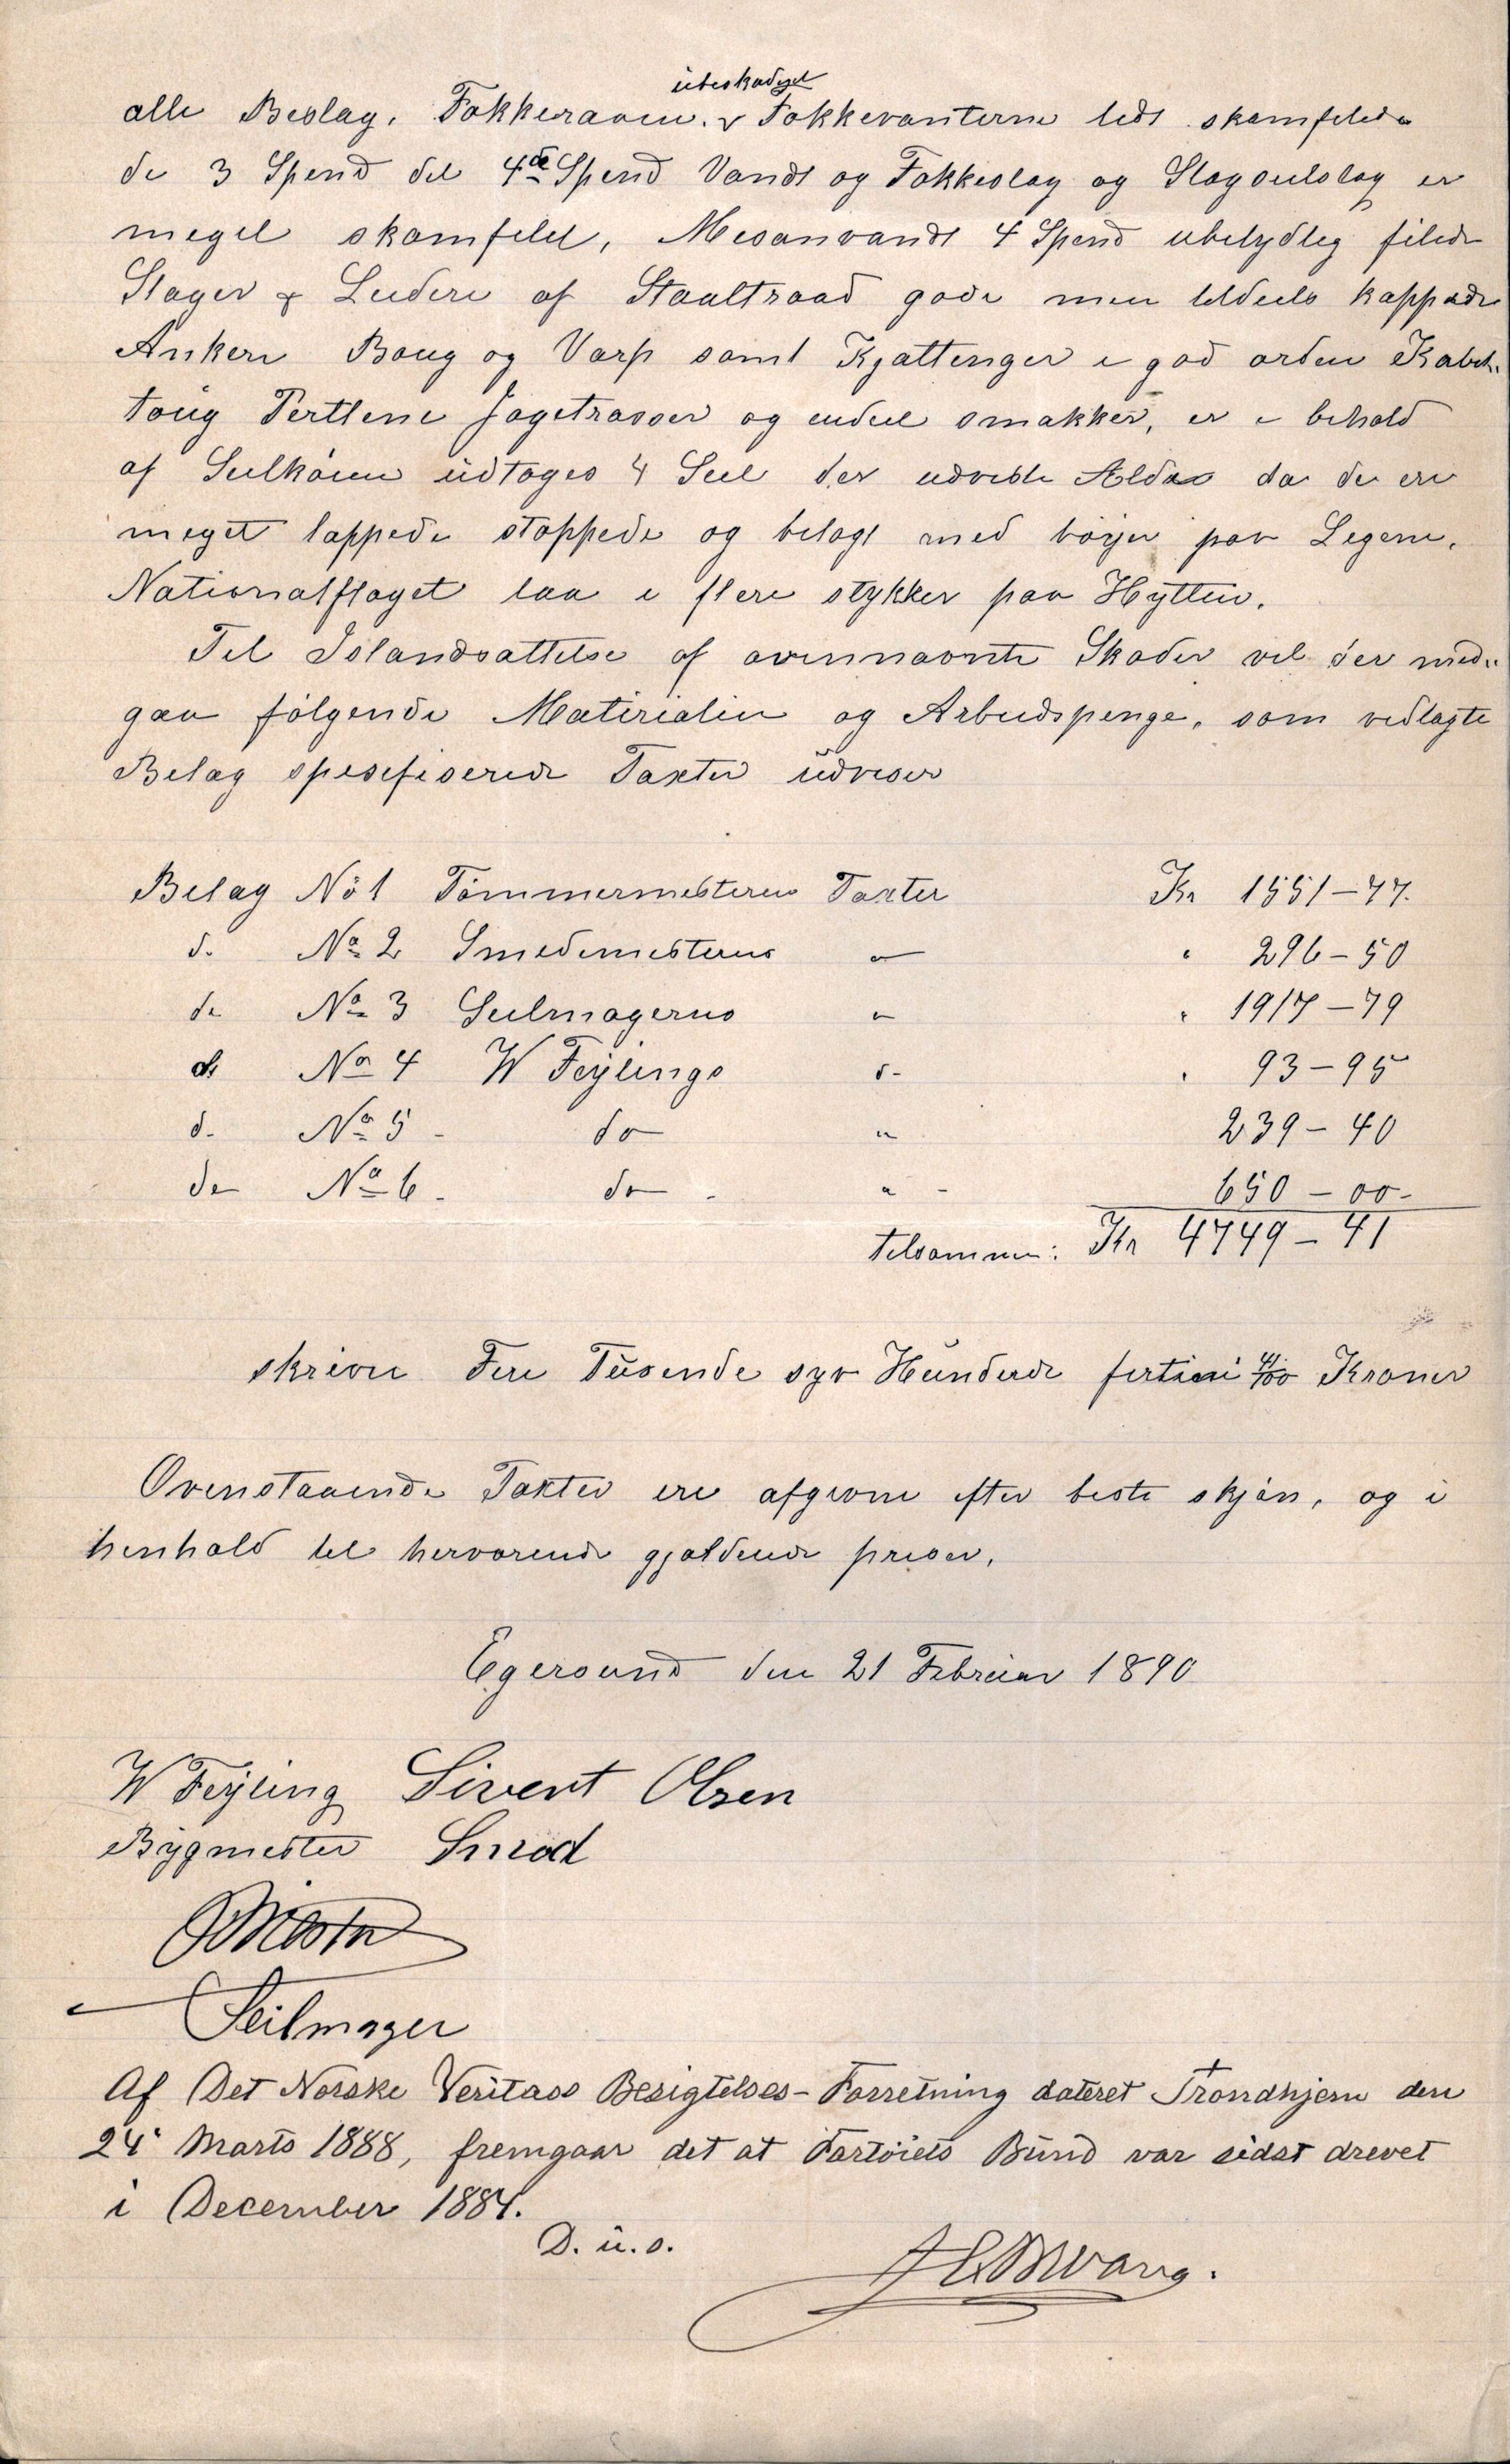 ubeskadiget
alle Beslag. Fokkeraaen. v Fokkevanterne lidt skamfilede
de 3 Spend det 4de Spend Vandt og Fokkestag og Stagseilstag er
meget skamfilet, Mesanvandt 4 Spend ubetydlig filede
Stager & Leidere af Staaltraad gode men tildeels kappede
Ankere Boug og Varp samt Kjættinger i god orden Kabel-
toug Pertlene Jagetrosser og endeel smakker, er i behold
af Seilkøien udtoges 4 Seil der udviste Ælde da de ere
meget lappede stoppede og belagt med bøyer paa Legene.
Nationalflaget laa i flere stykker paa Hytten.
Til Istandsættelse af ovennævnte Skader vil der med-
gaa følgende Materialier og Arbeidspenge, som vedlagte
Belag spesifiserede Taxter udviser
Belag No 1 Tømmermesterens Taxter Kr 1551-77.
do No 2 Smedemesterens " " 296-50
do No 3 Seilmagerens " " 1917-79
do No 4 W Feylings do " 93-95
do No 5 - do " 239-40
do No 6 - do - " - 650-00-
tilsammen: Kr 4749-41
skrive Fire Tusende syv Hunderde førtini 41/100 Kroner
Ovenstaaende Taxter ere afgivne efter beste skjøn, og i
henhold til herværende gjældende priser.
Egersund den 21 Februar 1890
W Feyling Sivert Olsen
Bygmester Smed
Seilmager
Af Det Norske Veritass Besigtelses-Forretning dateret Trondhjem den
24' Marts 1888, fremgaar det at Fartøiets Bund var sidst drevet
i December 1884.
D. u. s.